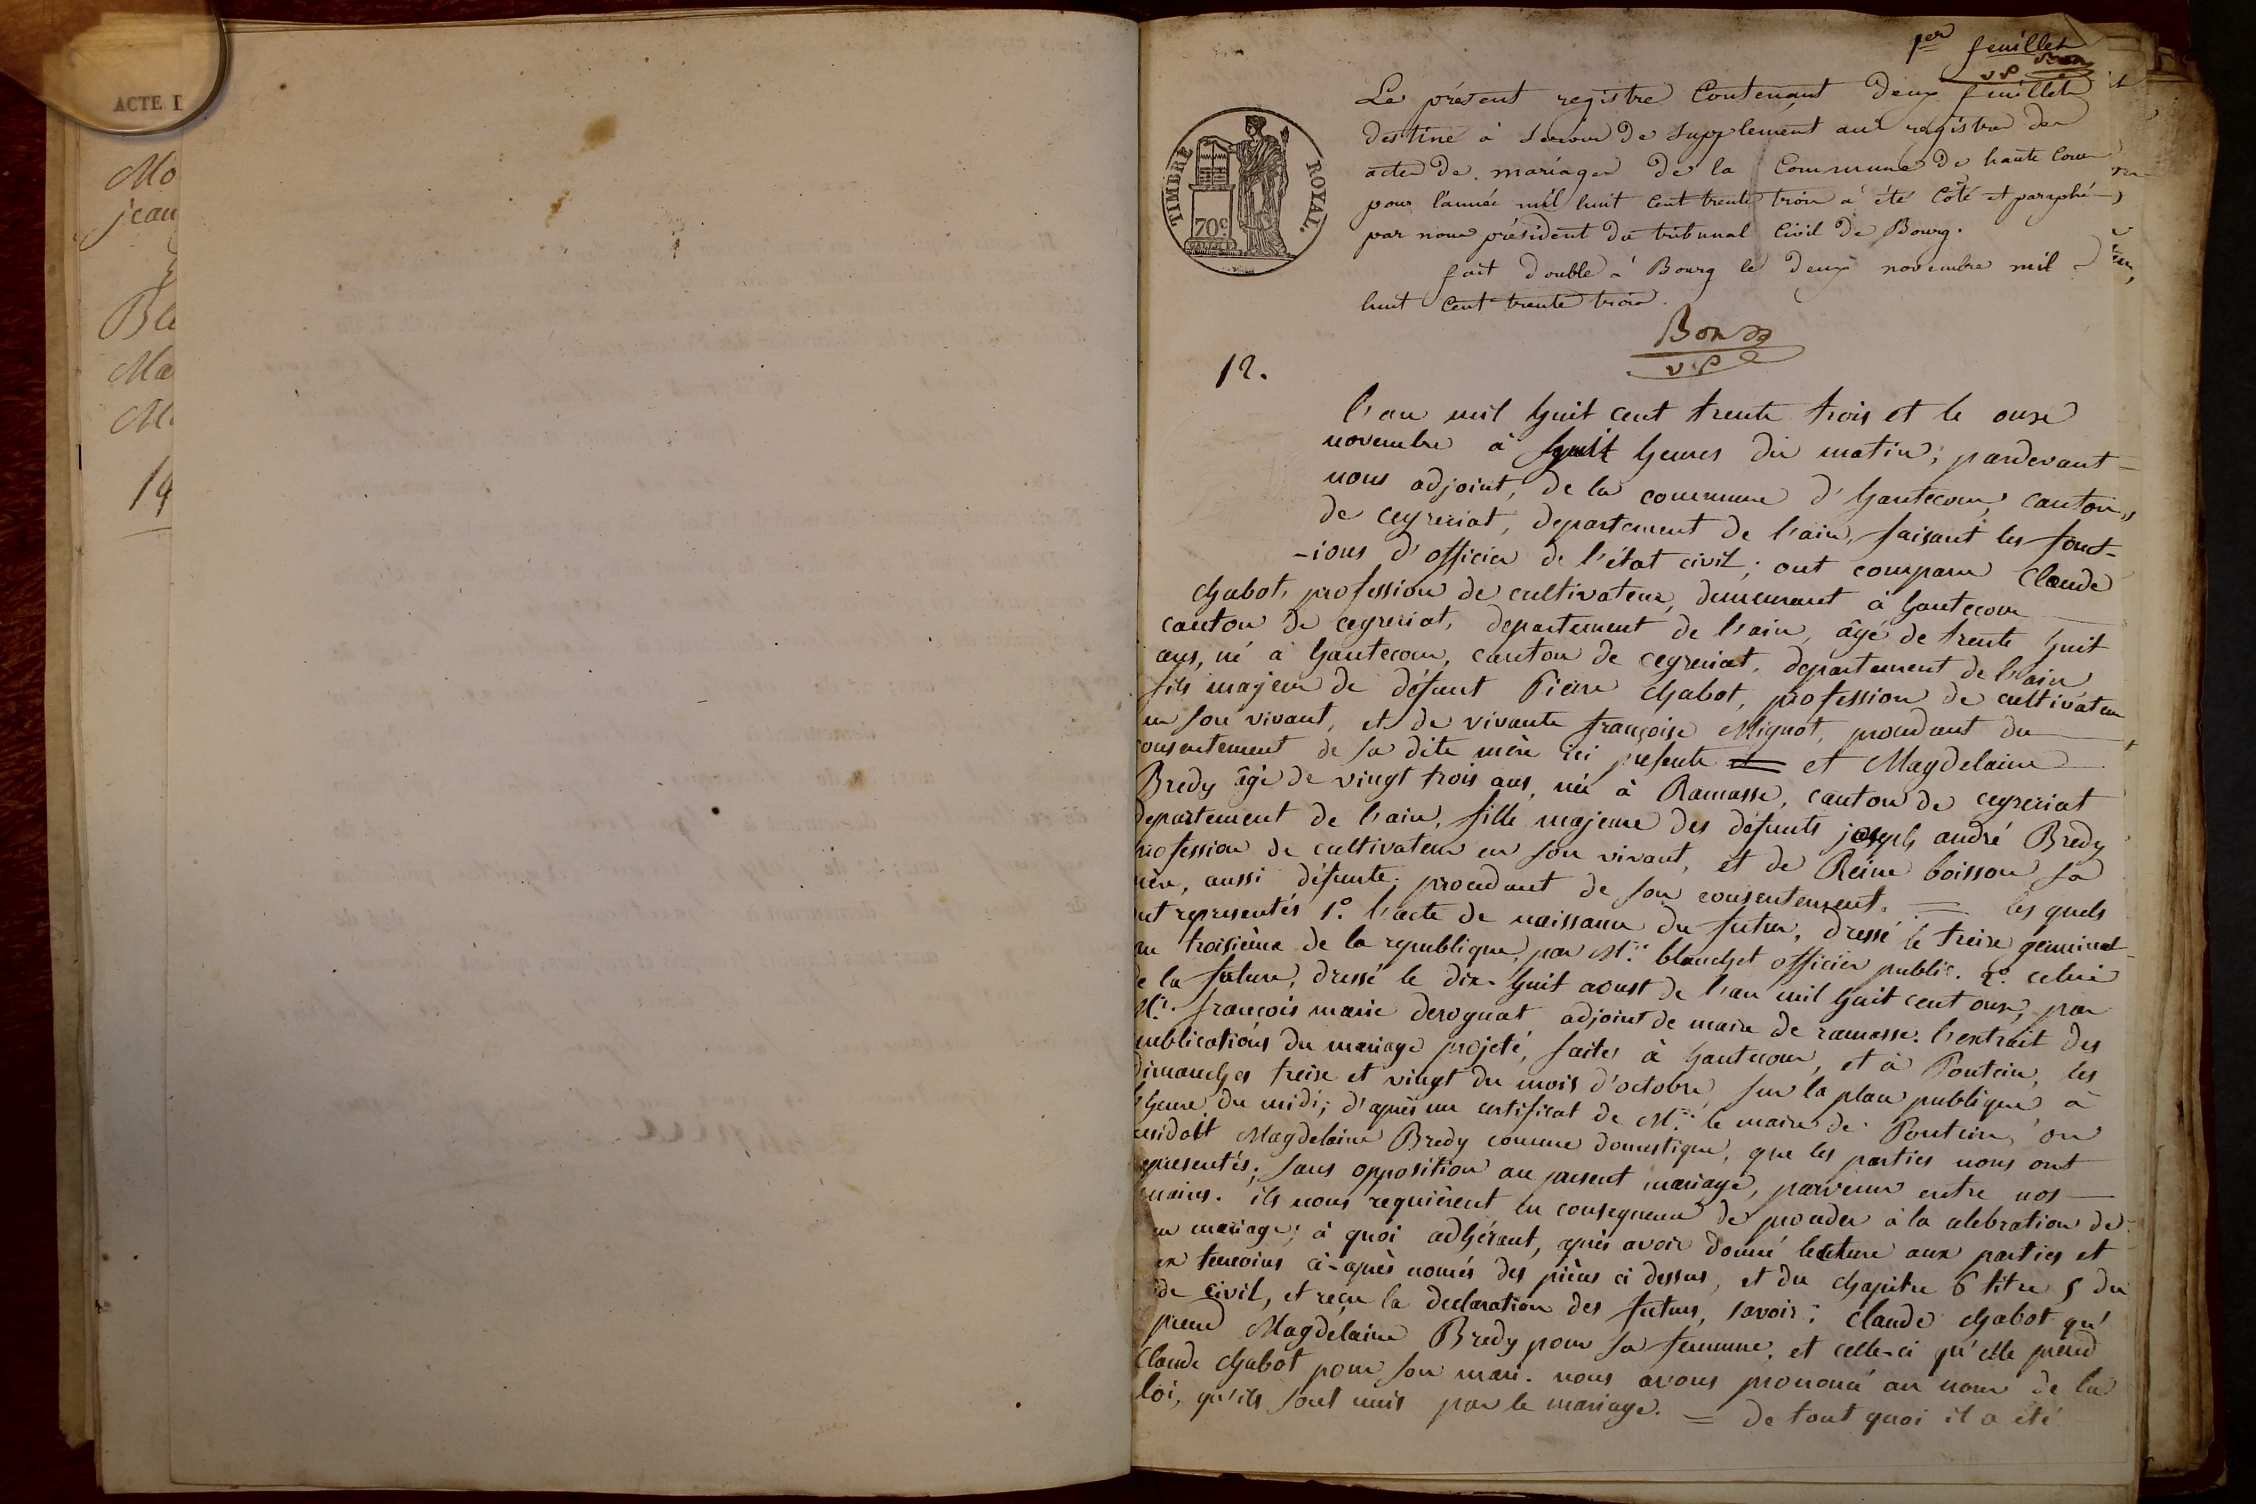 ACTE
Mo
jean
Ba
Ma
M
14
1er feuillet
v P Bon
Le présent registre Contenant deux feuillets
destiné à servir de supplement aux registre des
actes de mariages de la Commune de haute Cour
pour l'année mil huit Cent trente trois à été Coté et paraphé
par nous président du tribunal Civil de Bourg.
fait double à Bourg le deux novembre mil
huit Cent trente trois.
TIMBRE ROYAL.
70c
v.P
12.
l'an mil huit cent trente trois et le onze
novembre à huit heures du matin; pardevant
nous adjoint, de la commune d'hautecour, canton
de ceyzeriat, departement de l'ain, faisant les fonct-
-ions d'officier de l'état civil; ont comparu Claude
Chabot, profession de cultivateur, demeurant à hautecour
canton de ceyzeriat, departement de l'ain, âgé de trente huit
ans, né à hautecour, canton de ceyzeriat, departement de l'ain
fils majeur de défunt Pierre Chabot, profession de cultivateur
en son vivant, et de vivante françoise Mignot, procedant du
consentement de sa dite mère ici presente et et Magdelaine
Bredy âgé de vingt trois ans, née à Ramasse, canton de ceyzeriat
departement de l'ain, fille majeure des défunts joseph andré Bredy
profession de cultivateur en son vivant, et de Reine boisson sa
mère, aussi défunte; procedant de son consentement. = les quels
ont representés 1.° l'acte de naissance du futur, dressé le treize germinal
an troisième de la republique, par Mr. blanchet officier public. 2.° celui
de la future, dressé le dix-huit aoust de l'an mil huit cent onze, par
Mr. françois marie derognat adjoint de maire de ramasse. l'extrait des
publications du mariage projeté, faites à hautecour, et à Pontcin, les
dimanches treize et vingt du mois d'octobre, sur la place publique à
l'heure du midi; d'après un certificat de Mr. le maire de Pontcin, ou
residoit Magdelaine Bredy comme domestique, que les parties nous ont
representés; sans opposition au present mariage, parvenue entre nos
mains. ils nous requièrent en consequence de proceder à la celebration de
leur mariage; à quoi adhérant, après avoir donné lecture aux parties et
aux temoins ci-après només des pièces ci dessus, et du chapitre 6 titre 5 du
code civil, et reçu la declaration des futurs, savoir: Claude Chabot qu'
prend Magdelaine Bredy pour sa femme, et celle-ci qu'elle prend
Claude Chabot pour son mari. nous avons prononcé au nom de la
loi, qu'ils sont unis par le mariage. = de tout quoi il a été